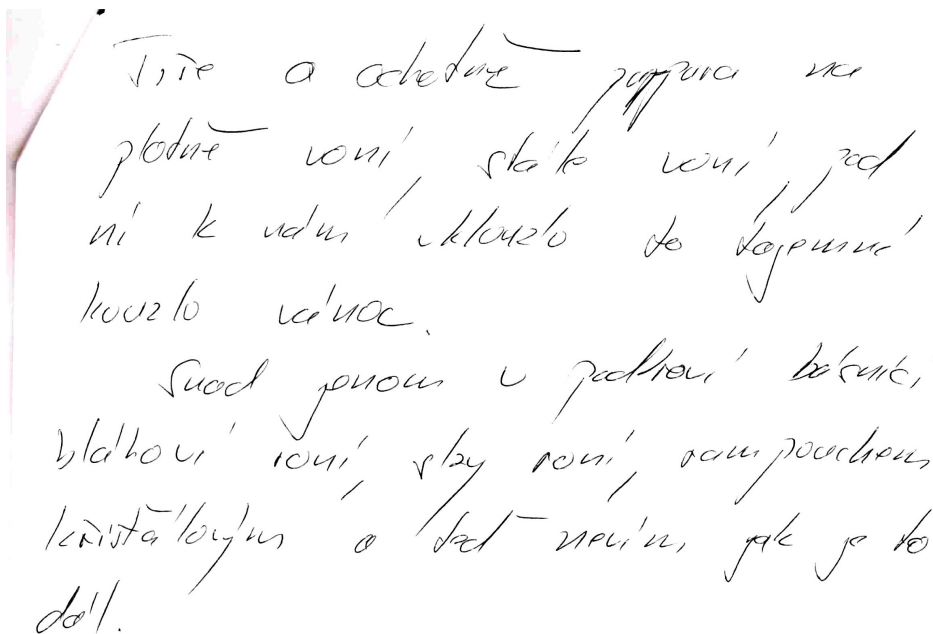 Tiše a ochotně purpura na
plotně voní, stále voní, pod
ní k nám vklouzlo to tajemné
kouzlo vánoc.
Snad jenom v podkroví básníci
bláhoví roní, slzy roní, rampouchem
křišťálovým a teď nevím, jak je to
dál.